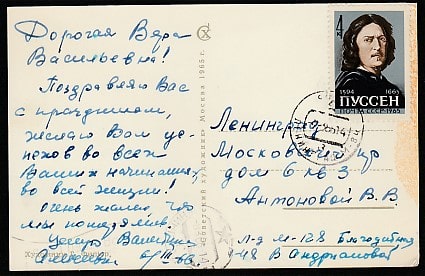 Дорогая Вера
Васильевна!
Поздравляю Вас
с праздником,
желаю Вам ус-
пехов во всех
Ваших начинаниях,
во всей жизни!
Очень жалею, что
мы
Целую Валентина
6/III 66
«Советский художник» Москва 1965 г.
4
к
1594 1665
ПУССЕН
ПОЧТА СССР 1965
Ленинград
Московский пр
дом 6 кв 3
Антоновой В. В.
Л-д М-128 Благодатная
В Андриановой